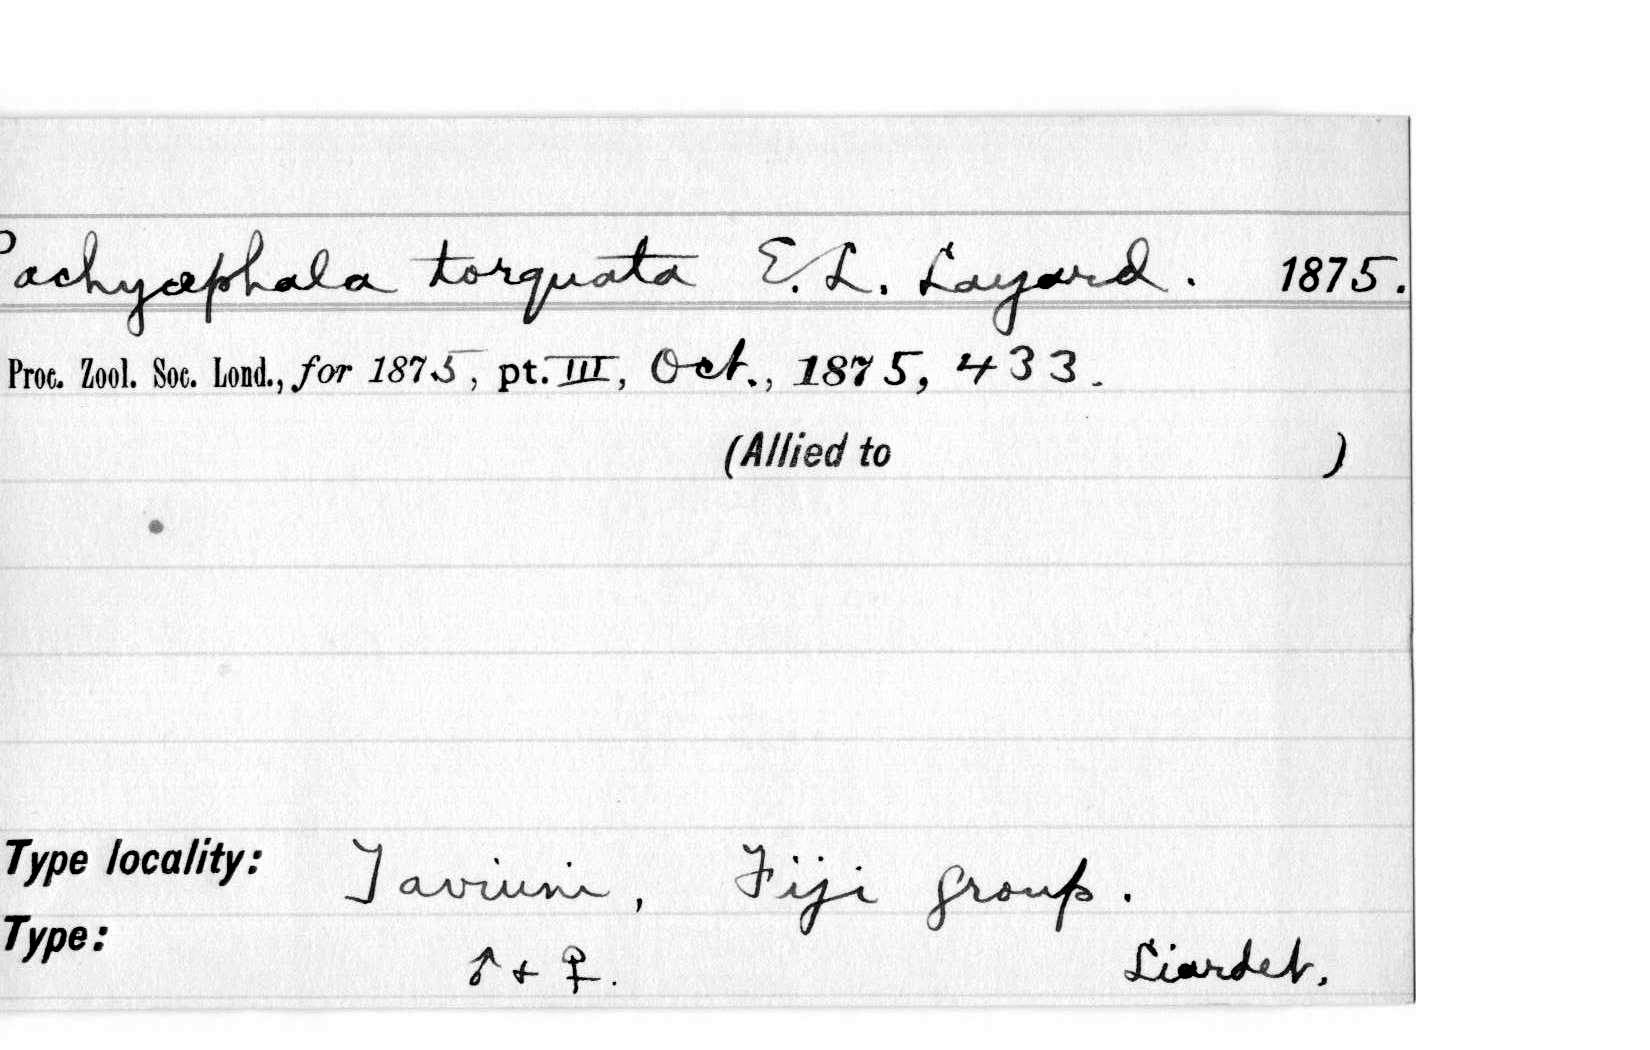 Pachycephala torquata E. L. Layard. 1875.
Proc. Zool. Soc. Lond., for 1875, pt. III, Oct., 1875, 433.
(Allied to )
Type locality: Taviuni, Fiji group.
Type: ♂ + ♀. Liardet.